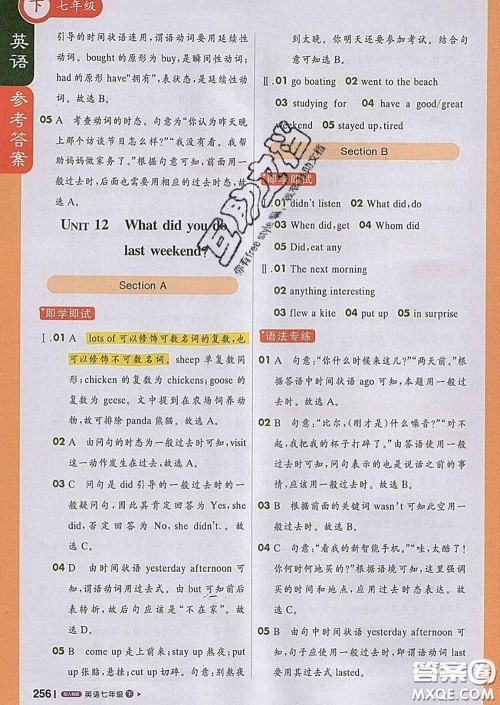 下 七年级
英语
参考答案
引导的时间状语连用,谓语动词要用延续性
动词。bought 的原形为 buy,是瞬间性动词;
had 的原形 have“拥有”,表状态,是延续性动
词。故选 B。
05 A 考查动词的时态。句意为“你认为昨天晚
上那个访谈节目怎么样?”“我没有看。我帮
助妈妈做家务了。”根据句意可知,前面用一
般过去时,后面也需要用相应的过去时态。故
选 A。
UNIT 12 What did you do
last weekend?
Section A
即学即试
Ⅰ.01 A lots of 可以修饰可数名词的复数,也
可以修饰不可数名词。sheep 单复数同
形;chicken 的复数为 chickens;goose 的
复数为 geese。文中提到在农场饲养动
物,故可排除 panda 熊猫。故选 A。
02 A 由问句的时态为一般过去时可知,visit
这一动作发生在过去。故选 A。
03 C 问句是 did 引导的一般过去时的一
般疑问句,因此其肯定回答为 Yes,she
did;否定回答为 No,she didn't.。故
选 C。
04 D 由时间状语 yesterday afternoon 可
知,谓语动词用过去式。由 but 可知前后
表转折,故后句应该是“不在家”。故
选 D。
05 B come up 走上前来;stay up 熬夜;put
up 张贴,悬挂;cut up 切碎。句意为“昨晚
到太晚。你明天还要参加考试。结合句
意可知选 B。
Ⅱ.01 go boating 02 went to the beach
03 studying for 04 have a good/great
weekend 05 stayed up,tired
Section B
即学即试
Ⅰ.01 didn't listen 02 What did,do
03 When did,get 04 How was
05 Did,eat any
Ⅱ.01 The next morning
02 anything interesting
03 flew a kite 04 put up 05 in surprise
语法专练
01 A 句意:“你什么时候来这儿?”“两天前。”根
据答语中时间状语 ago 可知,本题用一般过去
时。故选 A。
02 B 句意:“比尔,(刚才是)什么噪音?”“对不
起,妈妈。我把杯子打碎了。”由答语使用一般
过去时可知,问句表示的也是过去,应使用一
般过去时态。故选 B。
03 B 根据前面的关键词 wasn't 可知此空用一
般过去时。故选 B。
04 C 句意:“看我的新智能手机。”“哇,太酷了!
你何时何地买的?”根据语境可知,这里强调
买的时间和地点,应用过去时态表示。故
选 C。
05 B 根据时间状语 yesterday afternoon 可知,
要用一般过去时,故谓语动词 last 要用其过去
式形式 lasted。
256 英语七年级 下
互助文档
答案圈
MXQE.COM